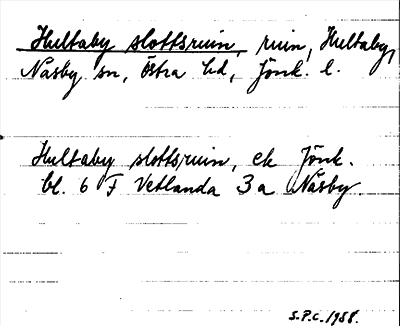 Hultaby slottsruin, ruin, Hultaby,
Näsby sn, Östra hd, Jönk. l.
Hultaby slottsruin, ek Jönk.
bl. 6 F Vetlanda 3a Näsby.
S.P.C. 1958.